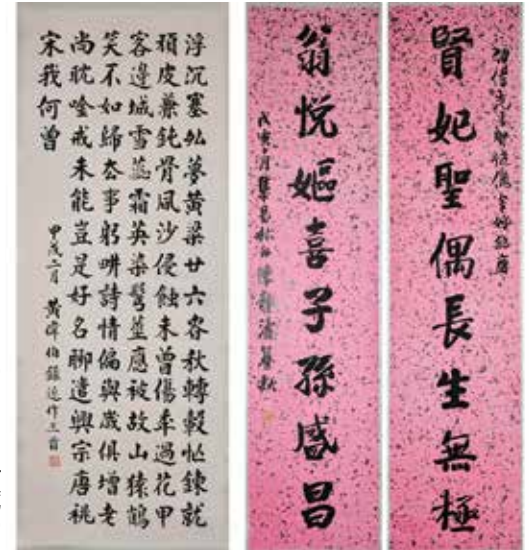 賢妃聖偶長生無極
翁悅嫗喜子孫盛昌
浮沉塞外夢黃粱廿六春秋轉轂忙鍊就
頑皮兼鈍骨風沙侵蝕未曾傷年過花甲
客邊城雪蕊霜英染鬢莖應被故山猿鶴
笑不如歸去事躬耕詩情偏與歲俱增老
尚耽吟戒未能豈是好名聊遣興宗唐祧
宋我何曾
甲戌二月 黃偉伯錄近作三首